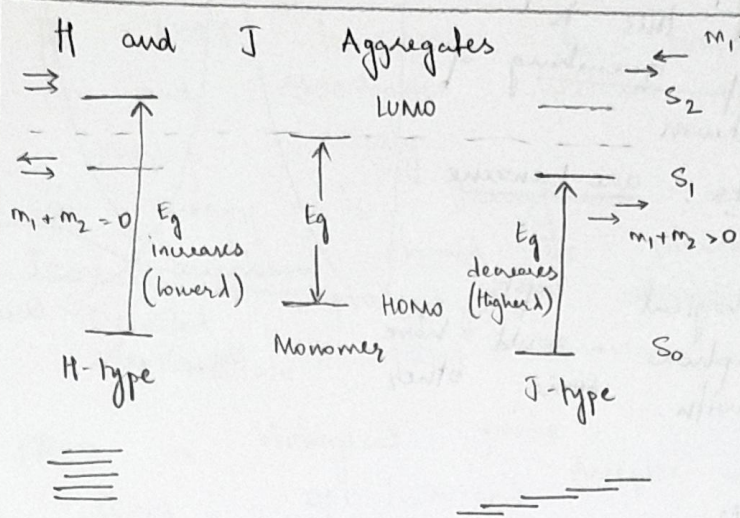 H and J Aggregates
m₁
LUMO
S₂
S₁
m₁ + m₂ = 0
Eg
increases
(lower λ)
Eg
Eg
decreases
(Higher λ)
m₁+m₂ > 0
HOMO
Monomer
S₀
H-type
J-type